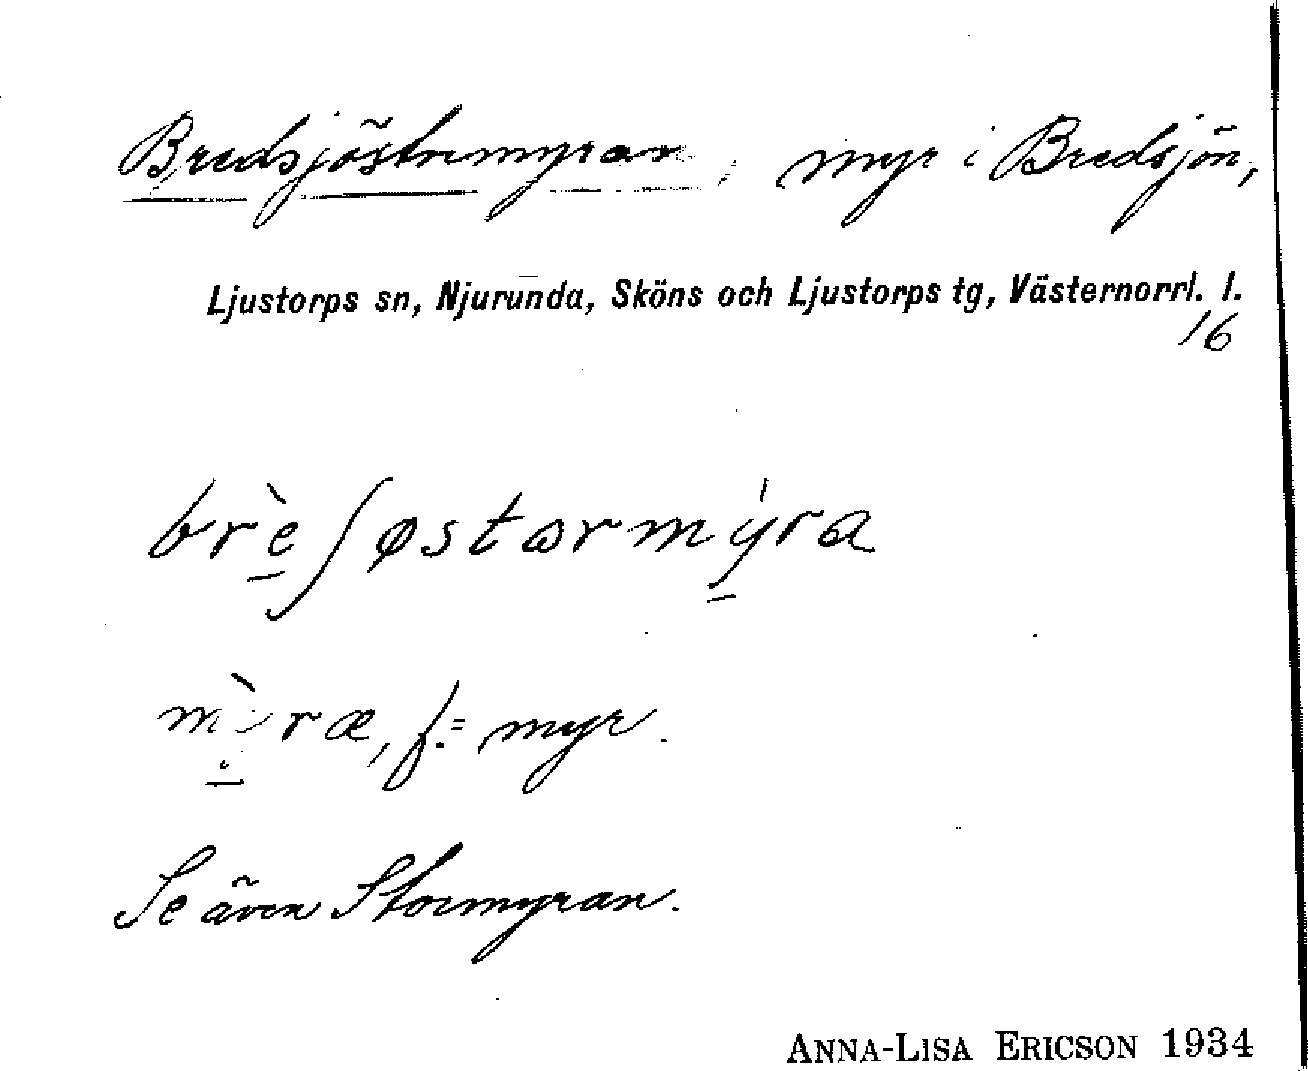 Bredsjöstormyran, myr i Bredsjön,
Ljustorps sn, Njurunda, Sköns och Ljustorps tg, Västernorrl. l.
16
brèʃøstɷrmýra
mỳræ, f. = myr.
Se även Stormyran.
ANNA-LISA ERICSON 1934